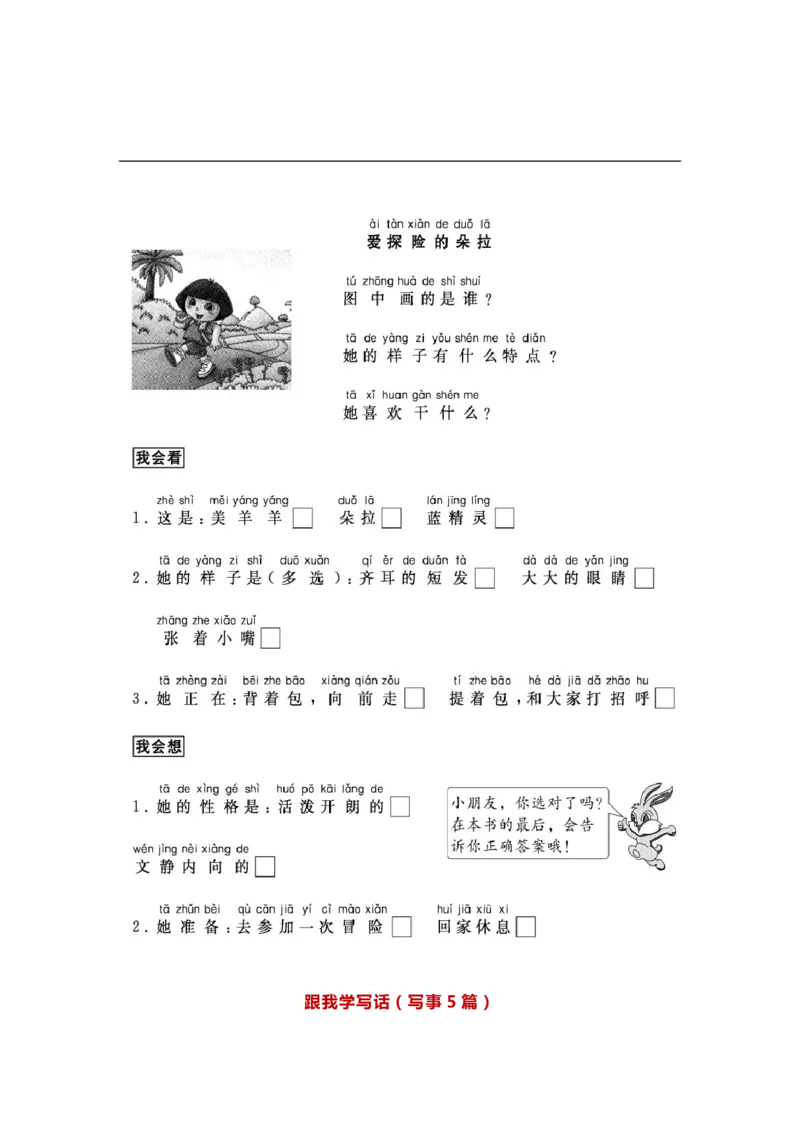 ài tàn xiǎn de duǒ lā
爱探险的朵拉
tú zhōng huà de shì shuí
图中画的是谁?
tā de yàng zi yǒu shén me tè diǎn
她的样子有什么特点?
tā xǐ huan gàn shén me
她喜欢干什么?
我会看
zhè shì měi yáng yáng duǒ lā lán jīng líng
1.这是:美羊羊□ 朵拉□ 蓝精灵□
tā de yàng zi shì duō xuǎn qí ěr de duǎn fà dà dà de yǎn jing
2.她的样子是(多选):齐耳的短发□ 大大的眼睛□
zhāng zhe xiǎo zuǐ
张着小嘴□
tā zhèng zài bēi zhe bāo xiàng qián zǒu tí zhe bāo hé dà jiā dǎ zhāo hu
3.她正在:背着包,向前走□ 提着包,和大家打招呼□
我会想
tā de xìng gé shì huó pō kāi lǎng de
1.她的性格是:活泼开朗的□
小朋友,你选对了吗?
在本书的最后,会告
诉你正确答案哦!
wén jìng nèi xiàng de
文静内向的□
tā zhǔn bèi qù cān jiā yí cì mào xiǎn huí jiā xiū xi
2.她准备:去参加一次冒险□ 回家休息□
跟我学写话(写事5篇)